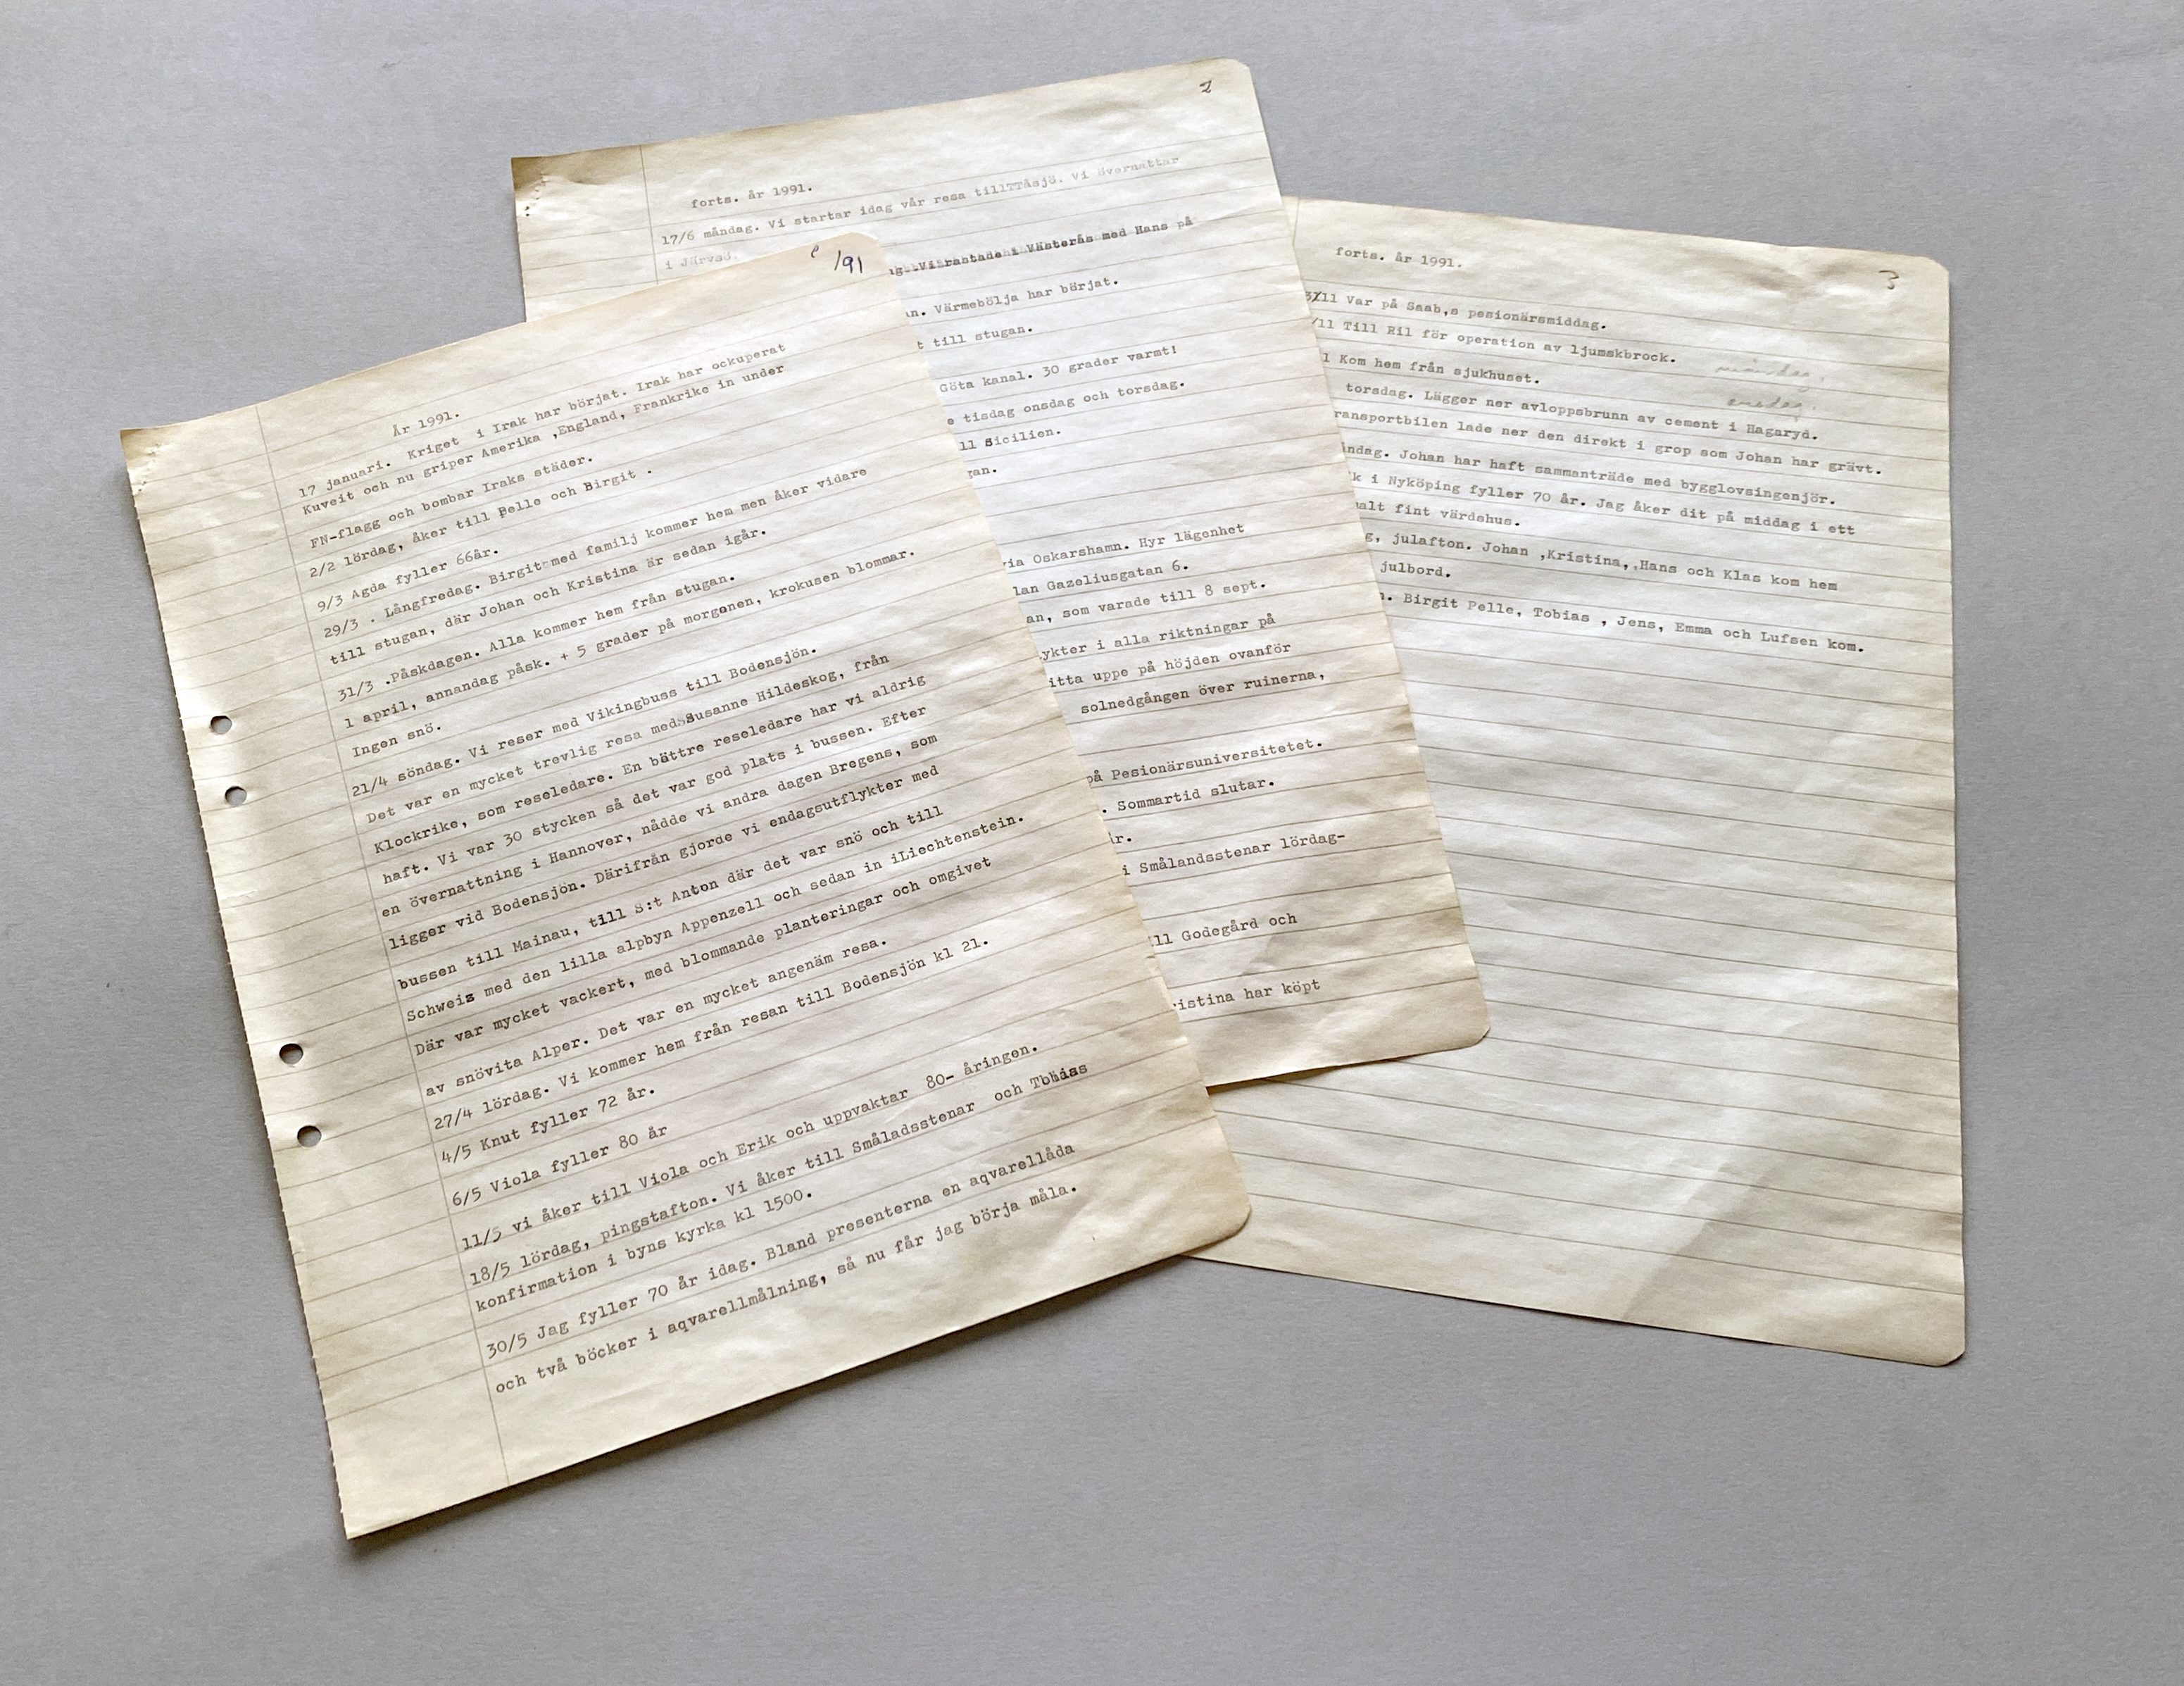 /91
År 1991.
17 januari. Kriget i Irak har börjat. Irak har ockuperat
Kuveit och nu griper Amerika ,England, Frankrike in under
FN-flagg och bombar Iraks städer.
2/2 lördag, åker till Pelle och Birgit .
9/3 Agda fyller 66år.
29/3 . Långfredag. Birgit med familj kommer hem men åker vidare
till stugan, där Johan och Kristina är sedan igår.
31/3 .Påskdagen. Alla kommer hem från stugan.
1 april, annandag påsk. + 5 grader på morgonen, krokusen blommar.
Ingen snö.
21/4 söndag. Vi reser med Vikingbuss till Bodensjön.
Det var en mycket trevlig resa medsSusanne Hildeskog, från
Klockrike, som reseledare. En bättre reseledare har vi aldrig
haft. Vi var 30 stycken så det var god plats i bussen. Efter
en övernattning i Hannover, nådde vi andra dagen Bregens, som
ligger vid Bodensjön. Därifrån gjorde vi endagsutflykter med
bussen till Mainau, till S:t Anton där det var snö och till
Schweiz med den lilla alpbyn Appenzell och sedan in iLiechtenstein.
Där var mycket vackert, med blommande planteringar och omgivet
av snövita Alper. Det var en mycket angenäm resa.
27/4 lördag. Vi kommer hem från resan till Bodensjön kl 21.
4/5 Knut fyller 72 år.
6/5 Viola fyller 80 år
11/5 vi åker till Viola och Erik och uppvaktar 80- åringen.
18/5 lördag, pingstafton. Vi åker till Småladsstenar och Tobias
konfirmation i byns kyrka kl 1500.
30/5 Jag fyller 70 år idag. Bland presenterna en aqvarellåda
och två böcker i aqvarellmålning, så nu får jag börja måla.
2
forts. år 1991.
17/6 måndag. Vi startar idag vår resa tillTTåsjö. Vi övernattar
i Järvsö.
Vi rastade i Västerås med Hans på
n. Värmebölja har börjat.
t till stugan.
Göta kanal. 30 grader varmt!
e tisdag onsdag och torsdag.
ll Sicilien.
gan.
via Oskarshamn. Hyr lägenhet
lan Gazeliusgatan 6.
an, som varade till 8 sept.
ykter i alla riktningar på
itta uppe på höjden ovanför
solnedgången över ruinerna,
på Pesionärsuniversitetet.
. Sommartid slutar.
år.
i Smålandsstenar lördag-
ill Godegård och
ristina har köpt
3
forts. år 1991.
/11 Var på Saab,s pesionärsmiddag.
/11 Till Ril för operation av ljumskbrock. måndag.
1 Kom hem från sjukhuset. onsdag.
torsdag. Lägger ner avloppsbrunn av cement i Hagaryd.
ransportbilen lade ner den direkt i grop som Johan har grävt.
åndag. Johan har haft sammanträde med bygglovsingenjör.
k i Nyköping fyller 70 år. Jag åker dit på middag i ett
malt fint värdshus.
g, julafton. Johan ,Kristina,,Hans och Klas kom hem
julbord.
n. Birgit Pelle, Tobias , Jens, Emma och Lufsen kom.